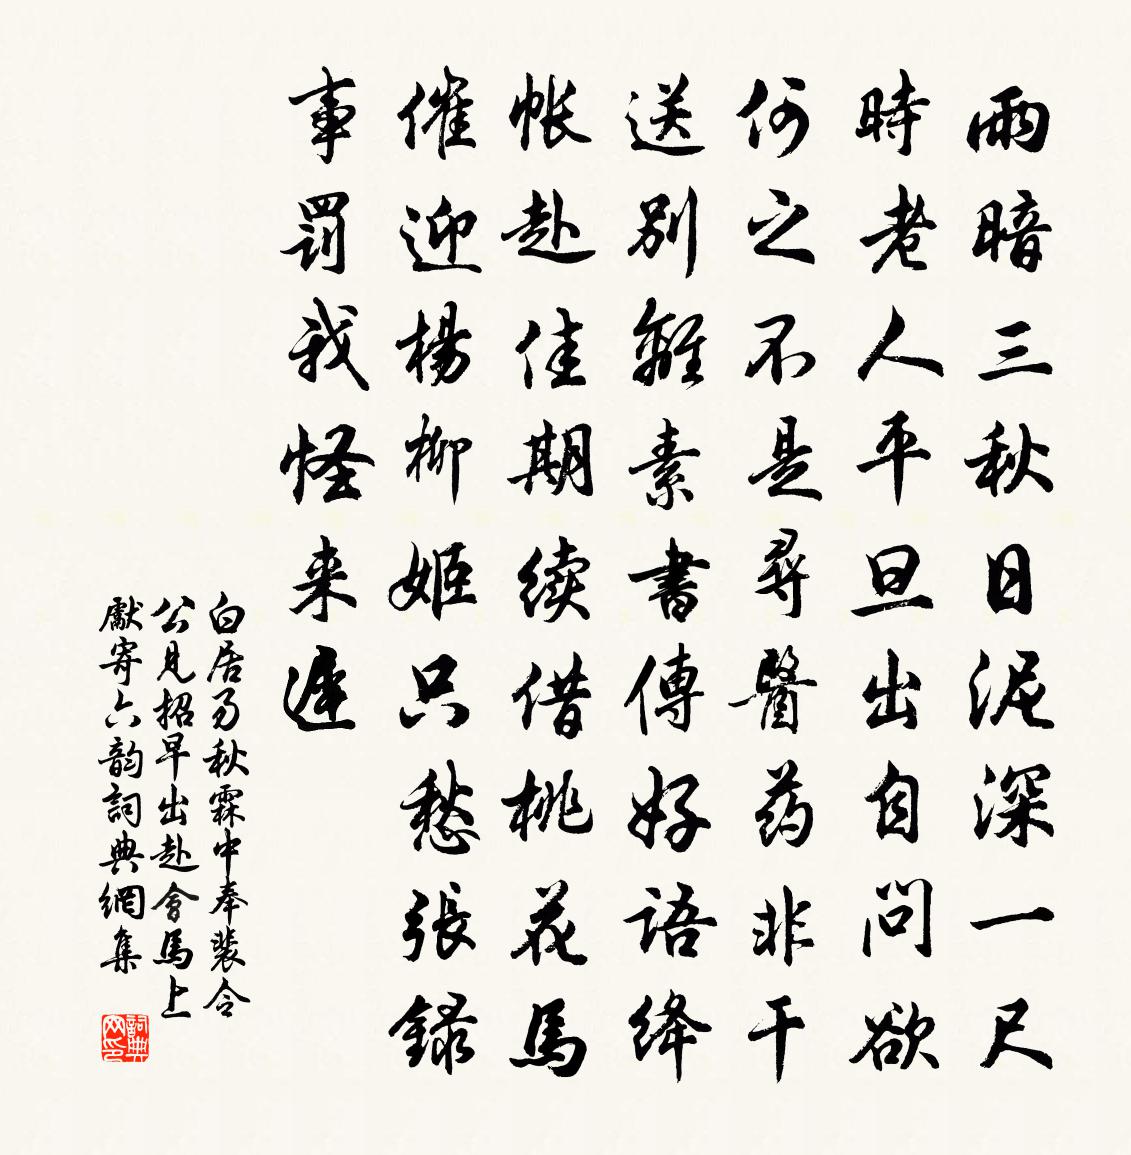 雨暗三秋日泥深一尺
時老人平旦出自問欲
何之不是尋醫药非干
送別離素書傳好語絳
帐赴佳期续借桃花馬
催迎楊柳姬只愁張錄
事罰我怪来遲
白居易秋霖中奉裴令
公見招早出赴會馬上
獻寄六韵詞典網集
詞典
网印